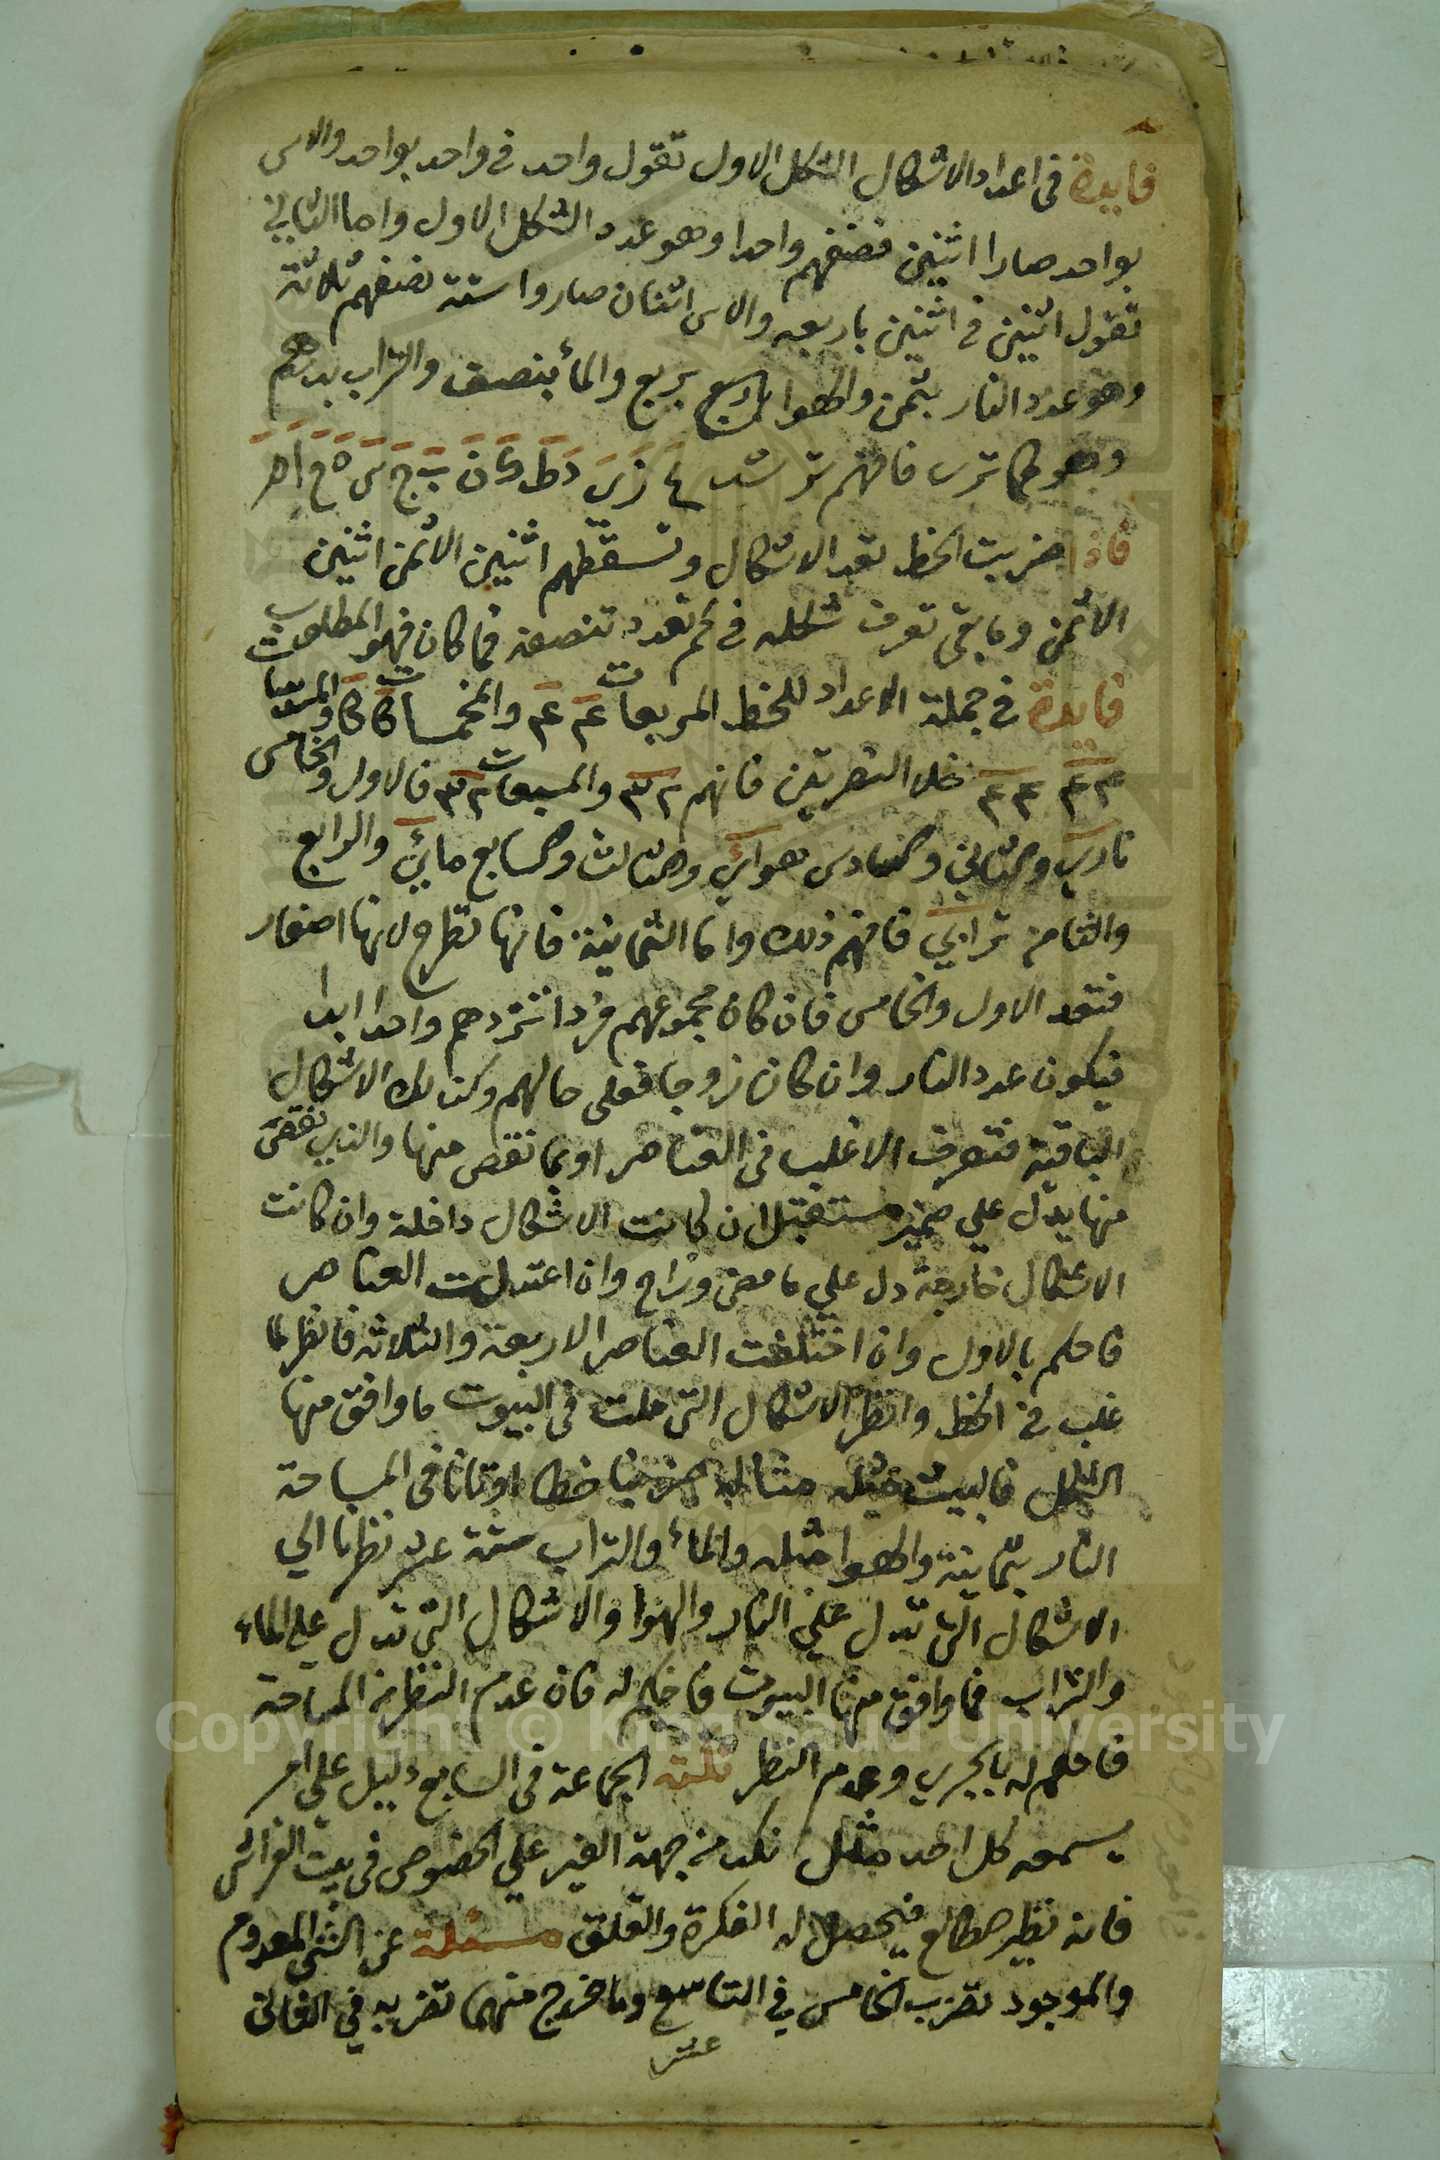 فايدة في اعداد الاشكال الشكل الاول تقول واحد في واحد بواحد والاس
بواحد صارا اثنين فنصفهم واحدا وهو عدد الشكل الاول واما الثاني
تقول اثنين في اثنين باربعه والاس اثنان صاروا ستة نصفهم ثلاثة
وهو عدد النار بثمن والهوا بربع والمأ بنصف والتراب بدرهم
وهو كما ترى فافهم ترشد
فاذا ضربت الخط تعد الاشكال وتسقطهم اثنين الاثمن اثنين
الاثمن وما بقى تعرف شكله في كم تعدد تنصفه فما كان فهو المطلوب
فايدة في جملة الاعداد للخط المربعات عم عم والمخمسات
خلا الطريقين فانهم ٣٢ والمسبعات ٣٢ فالاول والخامس
ناري والثاني والسادس هوائي والثالث والسابع مائي والرابع
والثامن ترابي فافهم ذلك واما الثمانية فانها تطرح لانها اصفار
فتعد الاول والخامس فان كان مجموعهم فردا تزدهم واحدا ابدا
فيكون عدد النار وان كان زوجا فعلى حالهم وكذلك الاشكال
الباقية فتعرف الاغلب في العناصر او بما نقص منها والذي نقص
منها يدل علي ضمير مستقبل ان كانت الاشكال داخلة وان كانت
الاشكال خارجة دل علي ما مضى وراح وان اعتدلت العناصر
فاحكم بالاول وان اختلفت العناصر الاربعة والثلاثه فانظر لما
غلب في الخط وانظر الاشكال التي حلت في البيوت ما وافق منها
الشكل فالبيت مثله مثاله ضربنا خطا اوتانا في المساحة
النار بثمانية والهوا مثله والمأ والتراب ستة عشر نظرنا الي
الاشكال التي تدل علي النار والهوا والاشكال التي تدل علي الماء
والتراب فما وافق منها البيوت فاحكم له فان عدم النظر من المساحة
فاحكم له بالجري وعدم النظر نكتة الجماعة في السابع دليل علي امر
يسمعه كل احد مثل نكد من جهة الغير علي الخصوص في بيت الفراش
فانه نظير الطالع فيحصل له الفكرة والقلق مسئلة عن الشي المعدوم
والموجود تضرب الخامس في التاسع وما خرج منهما تضربه في الثاني
عشر
Copyright © King Saud University